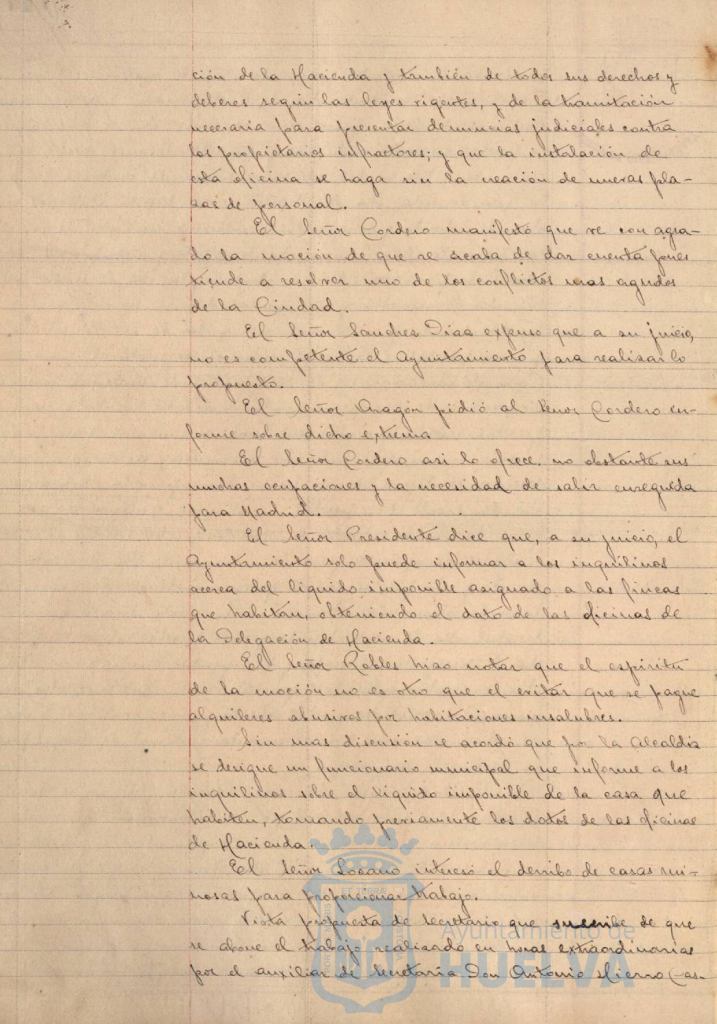 ción de la Hacienda y también de todos sus derechos y
deberes según las leyes vigentes, y de la tramitación
necesaria para presentar denuncias judiciales contra
los propietarios infractores; y que la instalación de
esta oficina se haga sin la creación de nuevas pla-
zas de personal.
El Señor Cordero manifestó que ve con agra-
do la moción de que se acaba de dar cuenta pues
tiende a resolver uno de los conflictos mas agudos
de la Ciudad.
El Señor Sánchez Díaz expuso que a su juicio,
no es competente el Ayuntamiento para realizar lo
propuesto.
El Señor Aragón pidió al Señor Cordero in-
forme sobre dicho extremo
El Señor Cordero asi lo ofrece no obstante sus
muchas ocupaciones y la necesidad de salir enseguida
para Madrid.
El Señor Presidente dice que, a su juicio, el
Ayuntamiento solo puede informar a los inquilinos
acerca del líquido imponible asignado a las fincas
que habitan, obteniendo el dato de las oficinas de
la Delegación de Hacienda.
El Señor Robles hizo notar que el espíritu
de la moción no es otro que el evitar que se pague
alquileres abusivos por habitaciones insalubres.
Sin mas discusión se acordó que por la Alcaldía
se designe un funcionario municipal que informe a los
inquilinos sobre el líquido imponible de la casa que
habiten, tomando previamente los datos de las oficinas
de Hacienda.
El Señor Lozano interesó el derribo de casas rui-
nosas para proporcionar trabajo.
Vista propuesta de Secretario que suscribe de que
se abone el trabajo realizado en horas extraordinarias
por el auxiliar de Secretaría Don Antonio Hierro Cas-
Ayuntamiento de
HUELVA